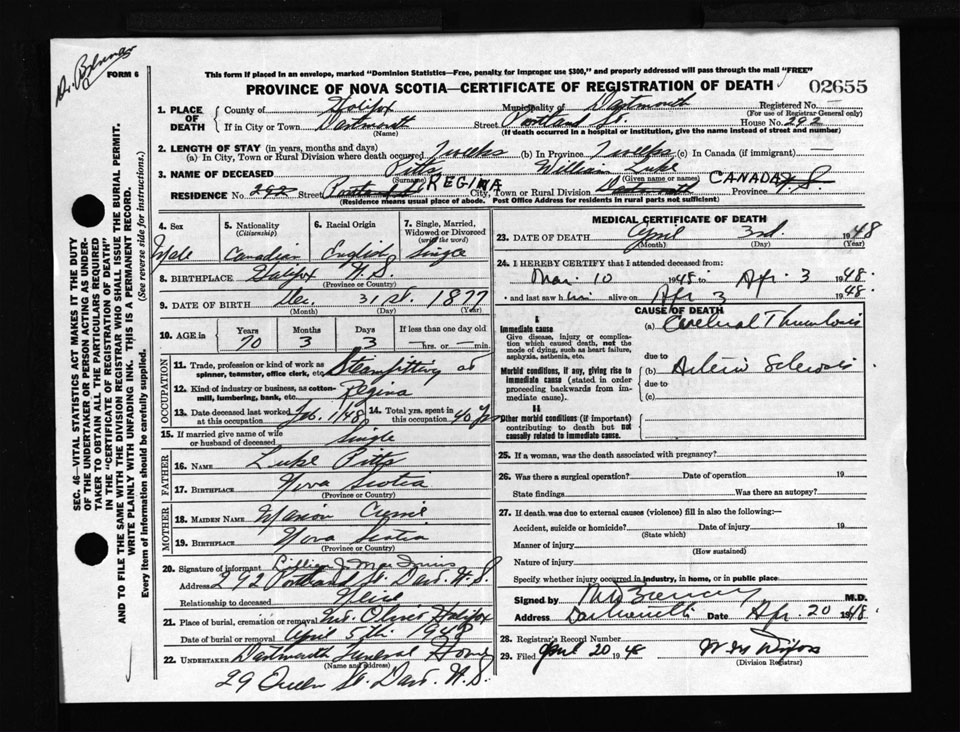 Dr. Brennan
FORM 6
This form if placed in an envelope, marked "Dominion Statistics—Free, penalty for improper use $300," and properly addressed will pass through the mail "FREE"
PROVINCE OF NOVA SCOTIA—CERTIFICATE OF REGISTRATION OF DEATH
02655
1. PLACE OF DEATH
County of Halifax Municipality of Dartmouth Registered No. —
(For use of Registrar General only)
If in City or Town Dartmouth Street Portland St. House No. 292
(Name) (If death occurred in a hospital or institution, give the name instead of street and number)
2. LENGTH OF STAY (in years, months and days)
(a) In City, Town or Rural Division where death occurred 7 weeks (b) In Province 7 weeks (c) In Canada (if immigrant) —
3. NAME OF DECEASED Pitts William Luke
(Surname) (Given name or names)
RESIDENCE No. 292 Street Portland St. REGINA City, Town or Rural Division Dartmouth CANADA Province N.S.
(Residence means usual place of abode. Post Office Address for residents in rural parts not sufficient)
4. Sex
Male
5. Nationality
(Citizenship)
Canadian
6. Racial Origin
English
7. Single, Married, Widowed or Divorced
(write the word)
Single
8. BIRTHPLACE Halifax N.S.
(Province or Country)
9. DATE OF BIRTH Dec. 31st. 1877
(Month) (Day) (Year)
10. AGE in
Years Months Days If less than one day old
70 3 3 —hrs. or —min.
OCCUPATION
11. Trade, profession or kind of work as spinner, teamster, office clerk, etc. Steamfitting at
12. Kind of industry or business, as cotton-mill, lumbering, bank, etc. Regina
13. Date deceased last worked at this occupation Feb. 1948 14. Total yrs. spent in this occupation 40 yrs
15. If married give name of wife or husband of deceased Single
FATHER
16. NAME Luke Pitts
17. BIRTHPLACE Nova Scotia
(Province or Country)
MOTHER
18. MAIDEN NAME Marion
19. BIRTHPLACE Nova Scotia
(Province or Country)
20. Signature of informant Lillian J. MacInnis
Address 292 Portland St. Dart. N.S.
Relationship to deceased Neice
21. Place of burial, cremation or removal Mt. Olivet Halifax
Date of burial or removal April 5th 1948
22. UNDERTAKER Dartmouth Funeral Home
(Name and address)
29 Queen St. Dart. N.S.
MEDICAL CERTIFICATE OF DEATH
23. DATE OF DEATH April 3rd. 1948
(Month) (Day) (Year)
24. I HEREBY CERTIFY that I attended deceased from:
Mar. 10 1948 to Apr. 3 1948.
and last saw him alive on Apr 3 1948.
CAUSE OF DEATH
I
Immediate cause
Give disease, injury or complication which caused death, not the mode of dying, such as heart failure, asphyxia, asthenia, etc.
(a) Cerebral Thrombosis
due to
Morbid conditions, if any, giving rise to immediate cause (stated in order proceeding backwards from immediate cause).
(b) Arterio Sclerosis
due to
(c)
II
Other morbid conditions (if important) contributing to death but not causally related to immediate cause.
25. If a woman, was the death associated with pregnancy?
26. Was there a surgical operation? Date of operation 19
State findings Was there an autopsy?
27. If death was due to external causes (violence) fill in also the following:—
Accident, suicide or homicide? Date of injury 19
(State which)
Manner of injury
(How sustained)
Nature of injury
Specify whether injury occurred in industry, in home, or in public place
Signed by M.D.
Address Dartmouth Date Apr. 20 1948
28. Registrar's Record Number
29. Filed April 20 1948
(Division Registrar)
SEC. 46—VITAL STATISTICS ACT MAKES IT THE DUTY
OF THE UNDERTAKER OR PERSON ACTING AS UNDER-
TAKER TO OBTAIN ALL THE PARTICULARS REQUIRED
IN THE "CERTIFICATE OF REGISTRATION OF DEATH"
AND TO FILE THE SAME WITH THE DIVISION REGISTRAR WHO SHALL ISSUE THE BURIAL PERMIT.
WRITE PLAINLY WITH UNFADING INK. THIS IS A PERMANENT RECORD.
Every item of information should be carefully supplied. (See reverse side for instructions.)